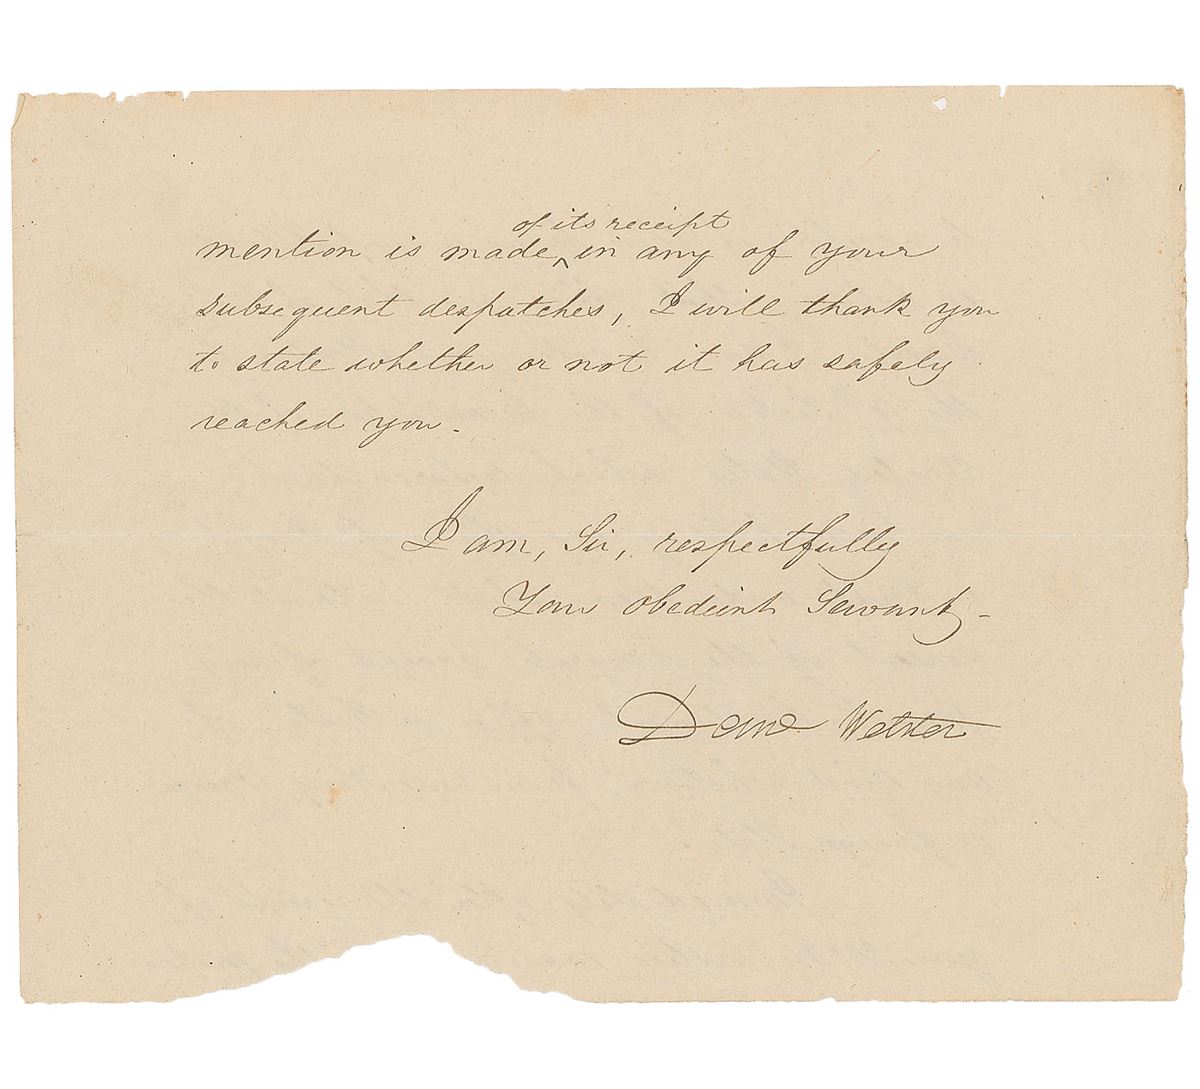 of its receipt
mention is made ‸ in any of your
subsequent despatches, I will thank you
to state whether or not it has safely
reached you.
I am, Sir, respectfully
Your obedient Servant,
Danl Webster